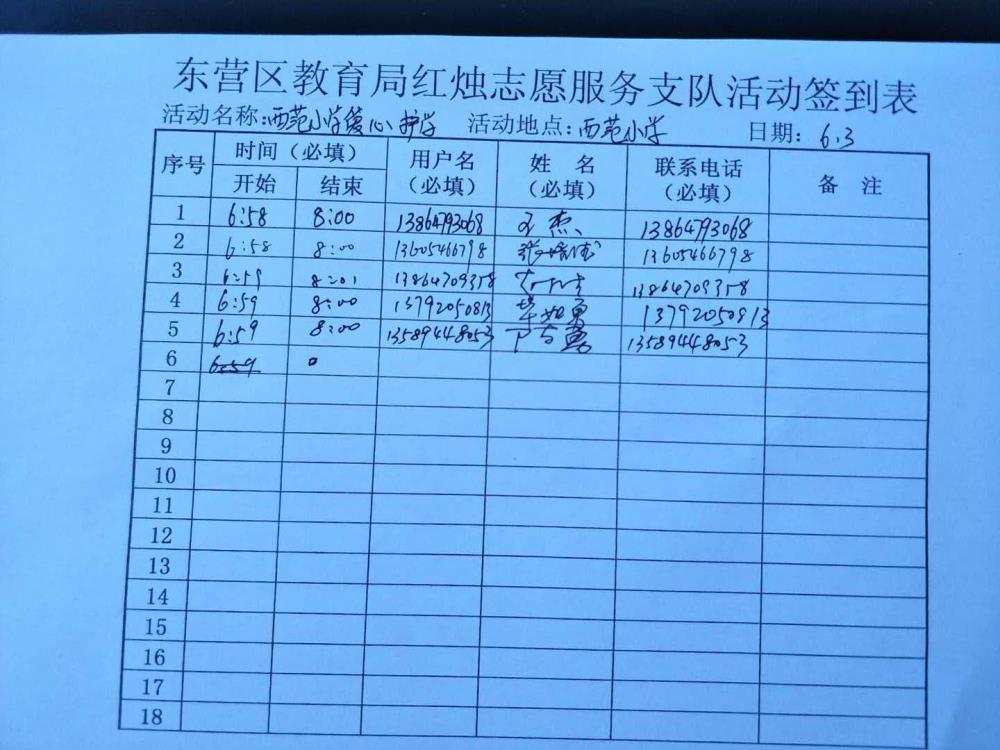 东营区教育局红烛志愿服务支队活动签到表
活动名称:西苑小学暖心护学 活动地点:西苑小学 日期: 6.3
序号 时间(必填) 用户名(必填) 姓 名(必填) 联系电话(必填) 备 注
开始 结束
1 6:58 8:00 13864793068 王杰 13864793068
2 6:58 8:00 13605466798 13605466798
3 6:59 8:01 13864709358 13864709358
4 6:59 8:00 13792050813 13792050813
5 6:59 8:00 13589448053 13589448053
6 6:59
7
8
9
10
11
12
13
14
15
16
17
18